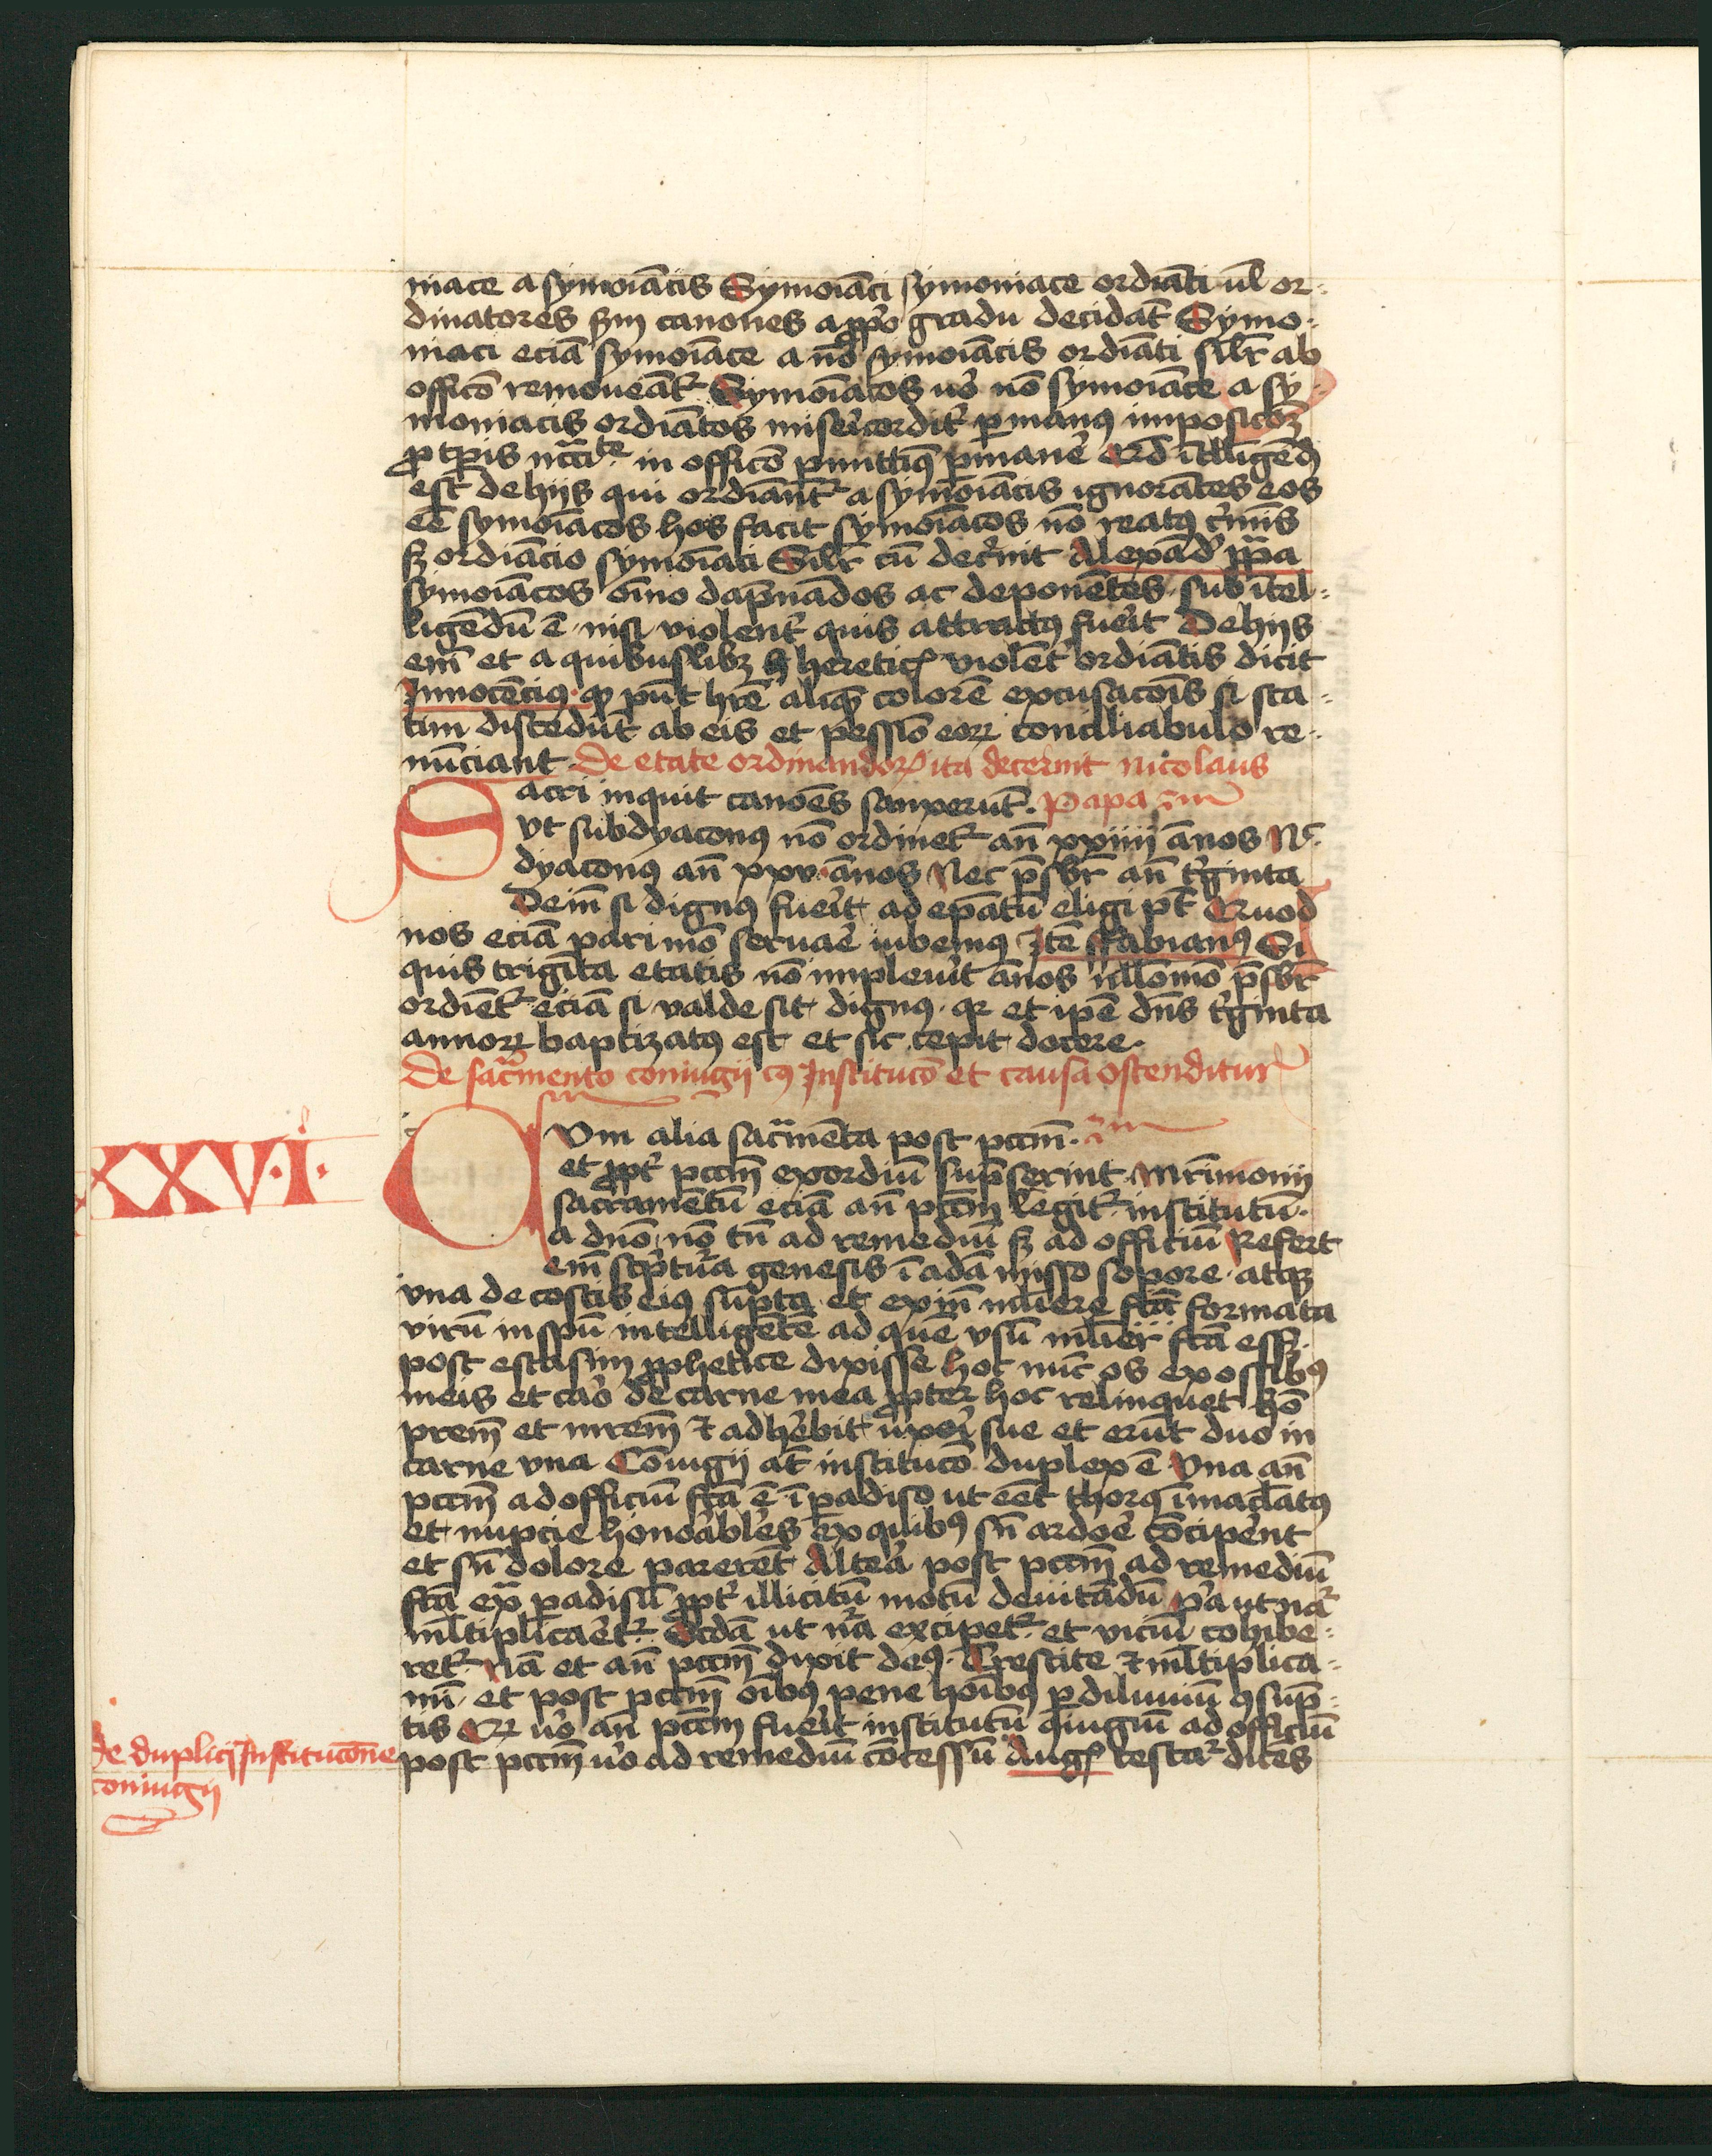 niace a symoīacis Symoīaci symoniace ordīati ul̄ or-
dinatores scd̄m canones a ꝓp̄o gradu decidāt Symo-
niaci eciā symoīace a nō symoīacis ordīati silr̄ ab
officō remoueāt᷑ Symoīacos u̓o nō symoīace a sy-
moniacis ordīatos mis̓icordit̓ ꝑ manꝰ imposicōꝫ
ꝓ tꝑis in officō ꝑmane̓
est de hijs qui ordīant᷑ a symoīacis ignorātes eos
eē symoīacos hos facit symoīacos nō reatꝰ c̓mīs
sꝫ ordīacio symoīaci Silr̄ cū dec̓nit Alexād̓ pp̄a
symoīacos oīno dāpnādos ac deponētes sub ītel-
ligēdū ē nisi violent̓ quis attractꝰ fuerit De hijs
em̄ et a quibuslibꝫ hereticꝭ violēt̓ ordīatis dicit
Innocēcius ꝙ pn̄t hr̄e aliqꝫ colorē excusacōis si sta-
tim discedūt ab eis et pessīo eoꝝ conciliabulo re-
nūciant De etate ordinandoꝝ ita decernit nicolaus
Sacri inquit canōes sanxerūt. Papa
vt subdyaconꝰ nō ordinet᷑ an̄ xxiiii ānos Nc̄
dyaconꝰ an̄ xxv ānos Nec p̄sbr̄ an̄ t̓ginta
Dein̄ si dignꝰ fuerit ad ep̄atū eligi pt̄ Quod
nos eciā pari mō seruare iubemꝰ Itē ffabianꝰ Si
quis trigīta etatis nō impleuit ānos nll̄omō p̄sbr̄
ordīet᷑ eciā si valde sit dignꝰ qꝛ et ip̄e dn̄s t̓ginta
annoꝝ baptizatꝰ est et sic cepit docere.
De sac̄mento coniugij cꝰ Institucō et causa ostenditur
XXVI.
CVm alia sac̄mēta post pccm̄.
et ꝓpt̓ pccm̄ exordiū sūpserint Mr̄imonij
sacramētū eciā an̄ pccm̄ legit᷑ institutū.
a dn̄o nō tm̄ ad remediū sꝫ ad officiū Refert
em̄ sc̓ptura genesis ī adā misso sopore atqꝫ
vna de costis eiꝰ sūpta et ex in̄ mulierē fc̄a formata
virū in spū intelligētē ad quē vsū mulier fc̄a ess̄
post extasim ꝓphetice dixisse hoc nūc os ex ossibꝰ
meis et caro de carne mea ꝓpter hoc relinquet hō
prem̄ et mrem̄ ⁊ adhe̓bit uxori sue et erūt duo in
carne vna Cōiugij at̄ institucō duplex ē Vna an̄
pccm̄ ad officiū fc̄a ē ī ꝑadiso ut eēt thorꝰ īmaclatꝰ
et nupcie honorables ex quibꝰ sn̄ ardore ꝯcipe̓nt
et sn̄ dolore parerēt Altera post pccm̄ ad remediū
fc̄a exᵃ ꝑadisū ꝓpt̓ illicitū motū deuitādū P̓a ut nā
ml̄tiplicaret᷑ Scda ut nr̄a excipet᷑ et viciū cohibe-
ret᷑ Nā et an̄ pccm̄ dixit deꝰ Crescite ⁊ ml̄tiplica-
mī et post pccm̄ oībꝰ pene hoībꝰ ꝑ diluuiū ꝯsūp-
tis Qꝛ u̓o an̄ pccm̄ fuerit institutū ꝯiugiū ad officiū
post pccm̄ u̓o ad remediū cōcessū Augꝰ testar̄ dices
de duplici Institucōne
coniugij